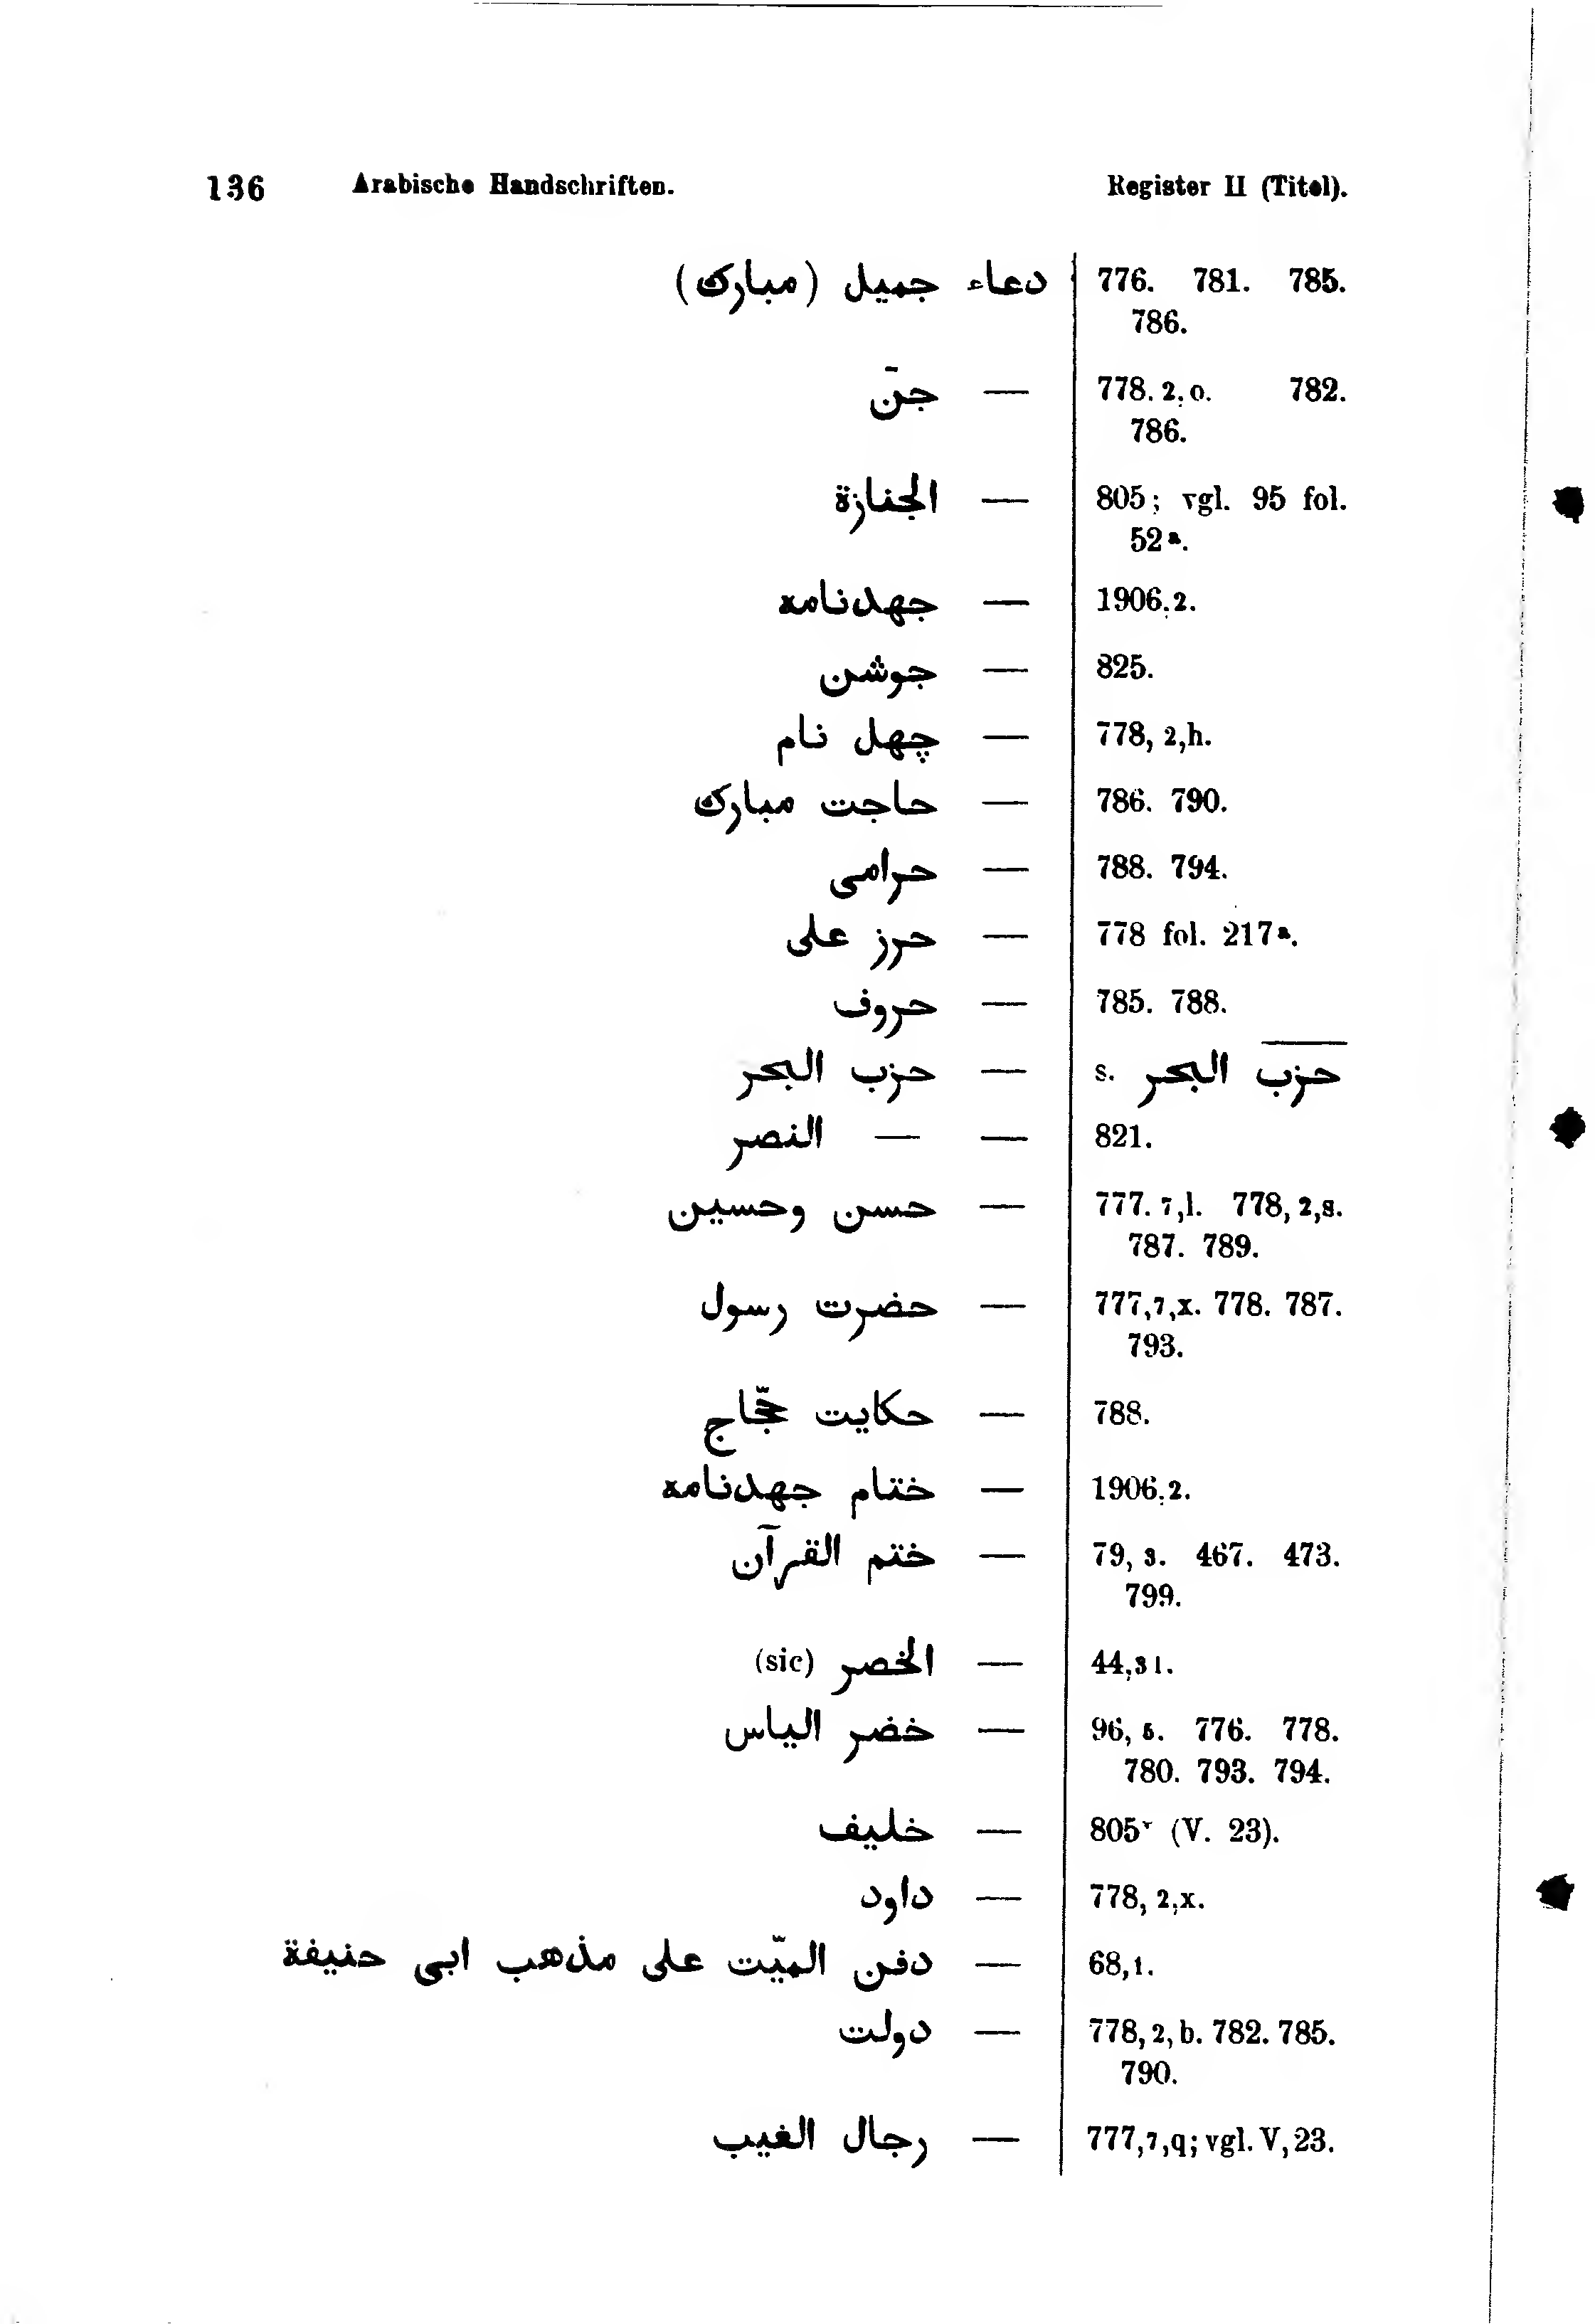 136 Arabische Handschriften. Register II (Titel).
دعاء جميل (مبارك) 776. 781. 785.
786.
— جنّ 778. 2, o. 782.
786.
— الجنازة 805; vgl. 95 fol.
52ª.
— جهدنامه 1906, 2.
— جوشن 825.
— چهل نام 778, 2, h.
— حاجت مبارك 786. 790.
— حرامى 788. 794.
— حرز على 778 fol. 217ª.
— حروف 785. 788.
— حزب البحر s. حزب البحر
— — النصر 821.
— حسن وحسين 777. 7, l. 778, 2, s.
787. 789.
— حضرت رسول 777, 7, x. 778. 787.
793.
— حكايت حجّاج 788.
— ختام جهدنامه 1906, 2.
— ختم القرآن 79, 3. 467. 473.
799.
— الخصر (sic) 44, 31.
— خضر الياس 96, 5. 776. 778.
780. 793. 794.
— خليف 805ᵛ (V. 23).
— داود 778, 2, x.
— دفن الميّت على مذهب ابى حنيفة 68, 1.
— دولت 778, 2, b. 782. 785.
790.
— رجال الغيب 777, 7, q; vgl. V, 23.